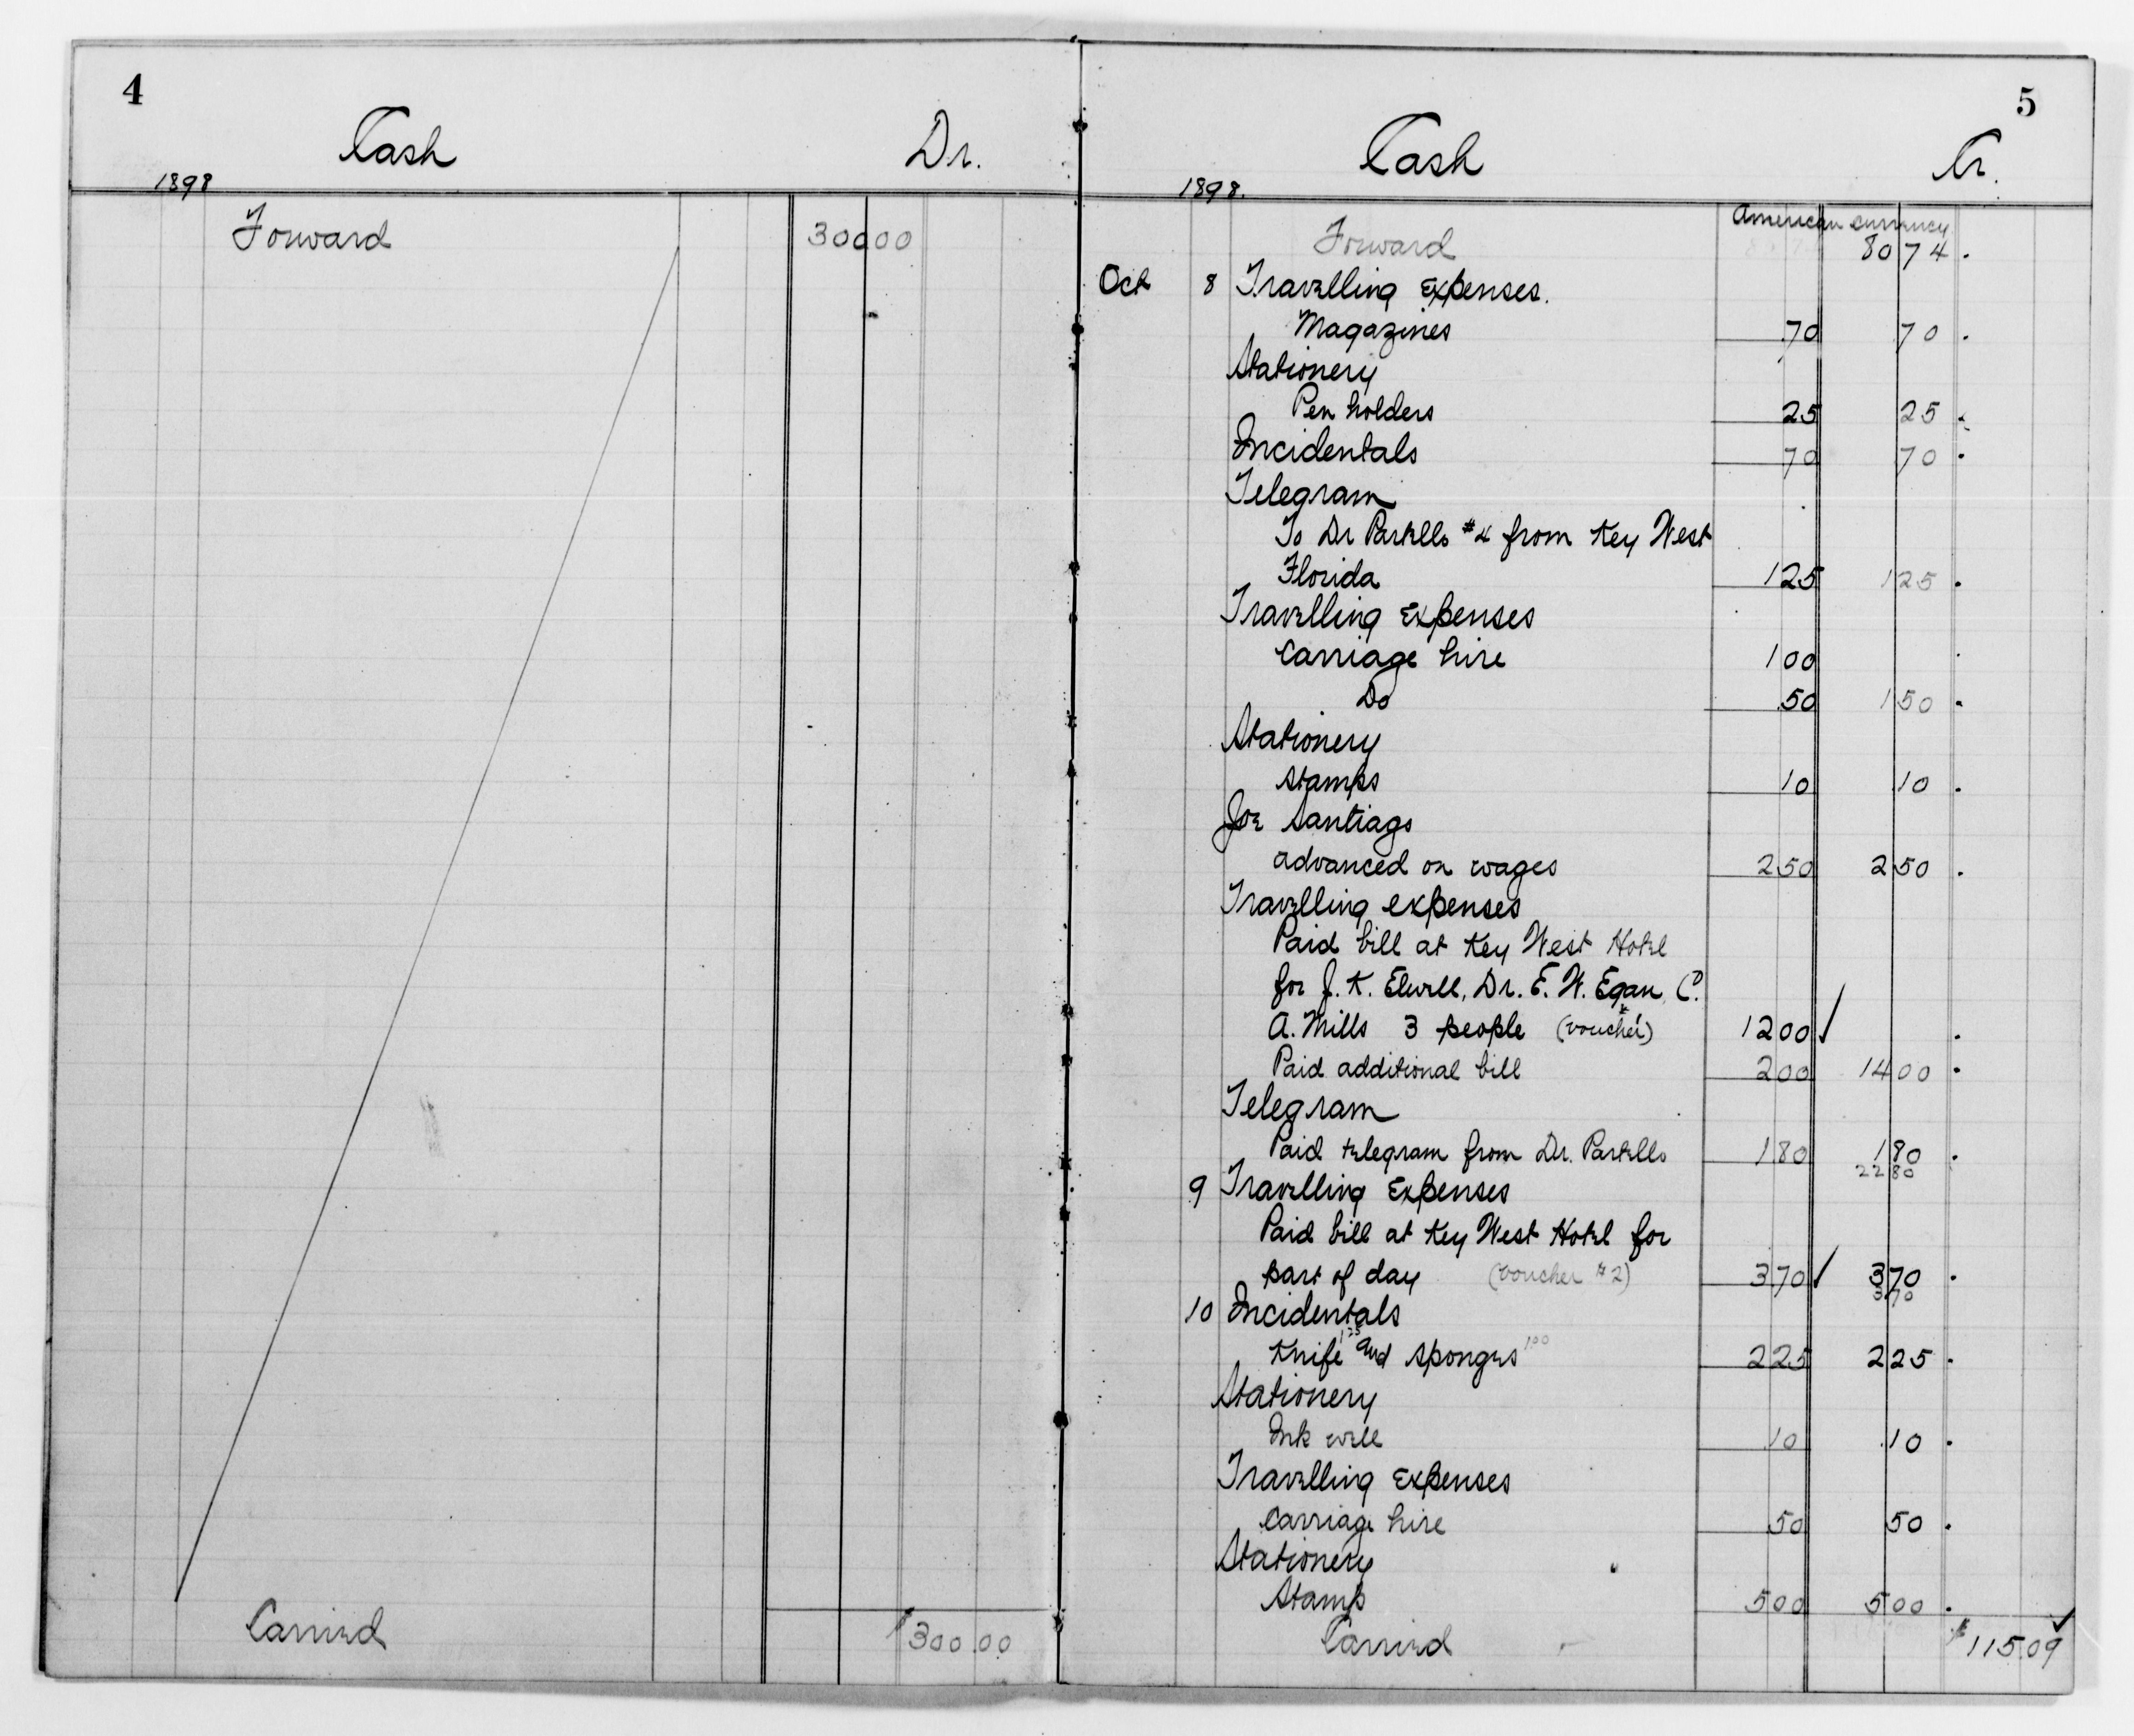 4
Cash Dr.
1898
Forward 300 00
Carried $300.00
5
Cash Cr.
1898.
American currency
Forward 80 74
Oct 8 Travelling Expenses.
Magazines 70 70
Stationery
Pen holders 25 25
Incidentals 70 70
Telegram
To Dr Partello #4 from Key West
Florida 125 125
Travelling Expenses
Carriage hire 100
Do 50 150
Stationery
Stamps 10 10
Joe Santiago
advanced on wages 250 250
Travelling expenses
Paid bill at Key West Hotel
for J. K. Elwell, Dr. E. W. Egan, C.
A. Mills 3 people (voucher) 1200 ✓
Paid additional bill 200 1400
Telegram
Paid telegram from Dr. Partello 180 180
22 80
9 Travelling Expenses
Paid bill at Key West Hotel for
part of day (voucher #2) 370 ✓ 370
3 70
10 Incidentals
Knife 125 and sponges 100 225 225
Stationery
Ink well 10 10
Travelling Expenses
Carriage hire 50 50
Stationery
Stamp 500 500
Carried $115.09 ✓